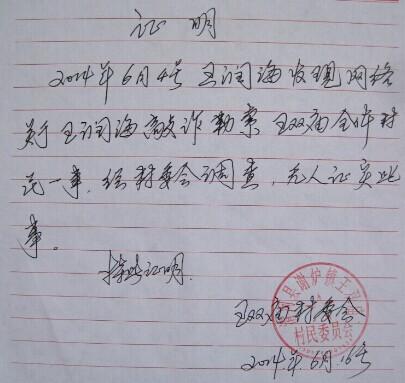 证明
2014年6月4号王润海发现网络
关于王润海敲诈勒索王双庙全体村
民一事，经村委会调查，无人证实此
事。
特此证明.
王双庙村委会
县谢炉镇王
村民委员会
2014年6月16号